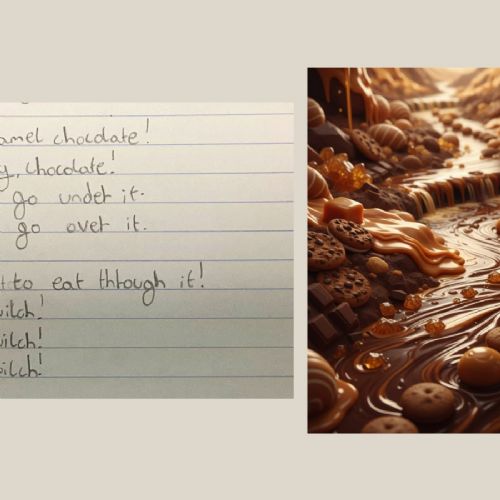 amel chocolate!
y, chocolate!
go under it.
go over it.
to eat through it!